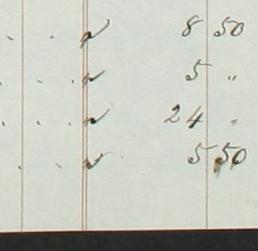 . . ✓ 8 50
. . ✓ 5 "
. . ✓ 24 "
. . ✓ 5 50